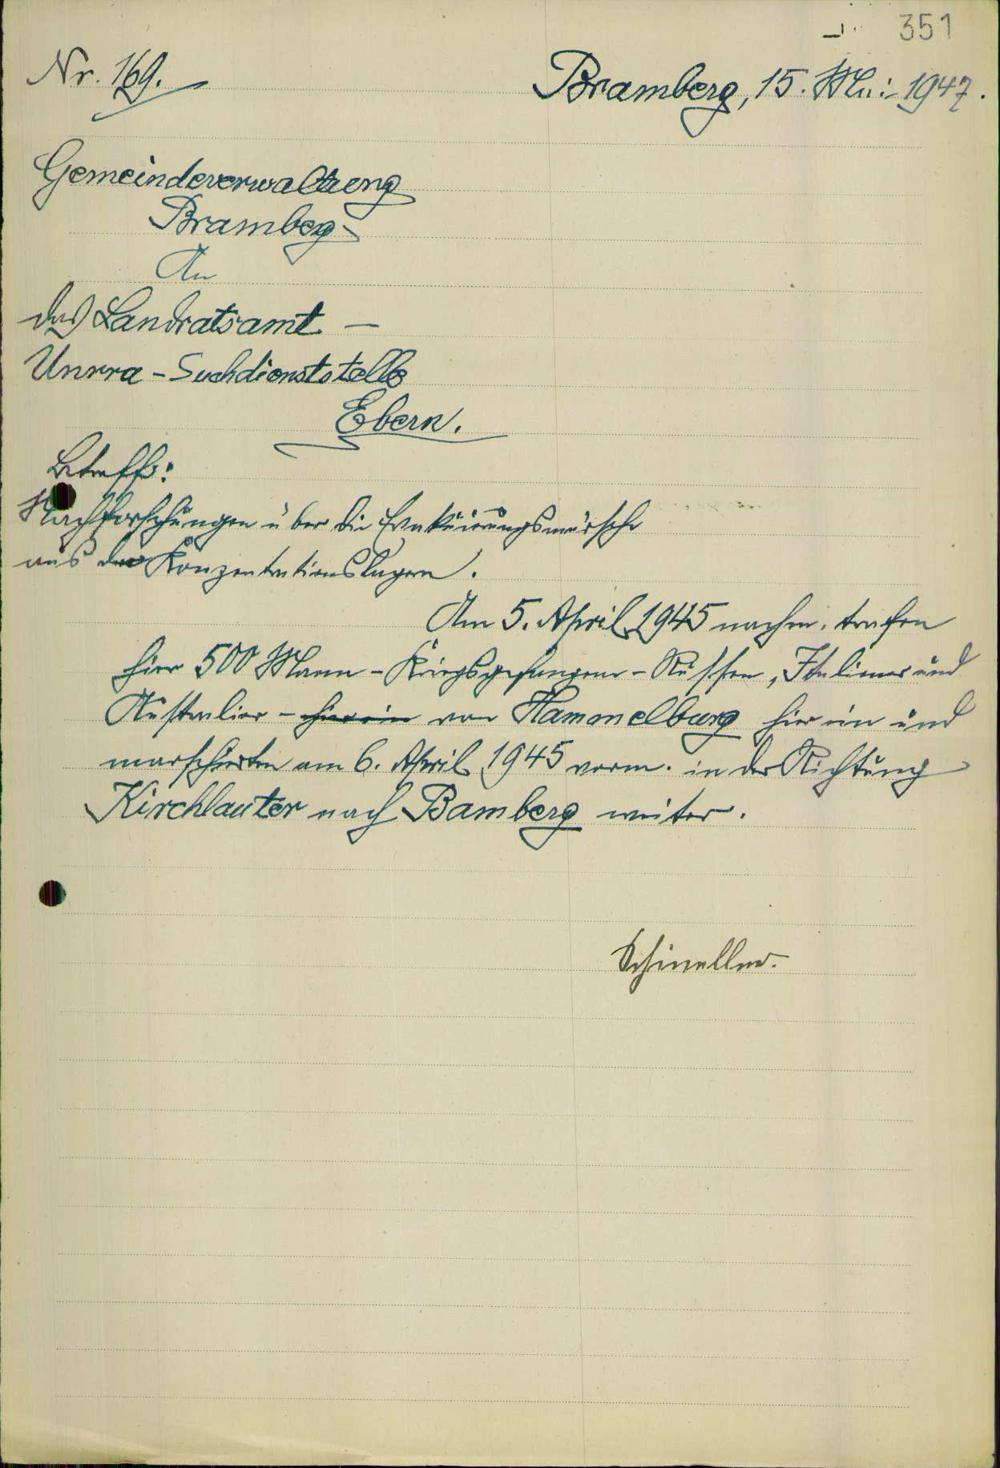 351
Nr. 169.
Bramberg, 15. Mai 1947.
Gemeindeverwaltung
Bramberg
An
das Landratsamt –
Unrra - Suchdienststelle
Ebern.
Betreff:
Nachforschungen über die Evakuierungsmärsche
aus den Konzentrationslagern.
Am 5. April 1945 nachm. trafen
hier 500 Mann - Kriegsgefangene - Russen, Italiener und
Australier - hier ein von Hammelburg hier ein und
marschierten am 6. April 1945 vorm. in der Richtung
Kirchlauter nach Bamberg weiter.